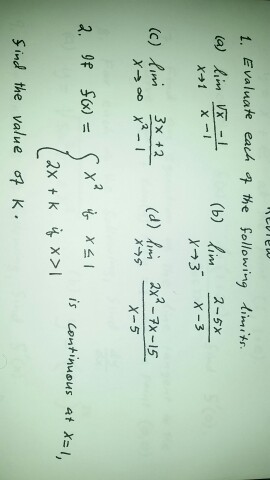 1. Evaluate each of the following limits.
(a) lim x→1 (√x - 1)/(x - 1) (b) lim x→3⁻ (2 - 5x)/(x - 3)
(c) lim x→∞ (3x + 2)/(x² - 1) (d) lim x→5 (2x² - 7x - 15)/(x - 5)
2. If f(x) = { x² if x ≤ 1
2x + k if x > 1 is continuous at x = 1,
find the value of K.